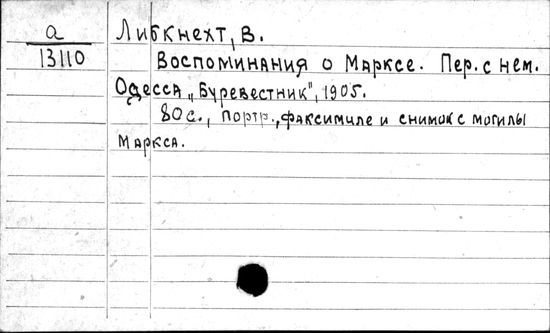 а
13110
Либкнехт, В.
Воспоминания о Марксе. Пер. с нем.
Одесса, „Буревестник", 1905.
80 с., портр., факсимиле и снимок с могилы
Маркса.